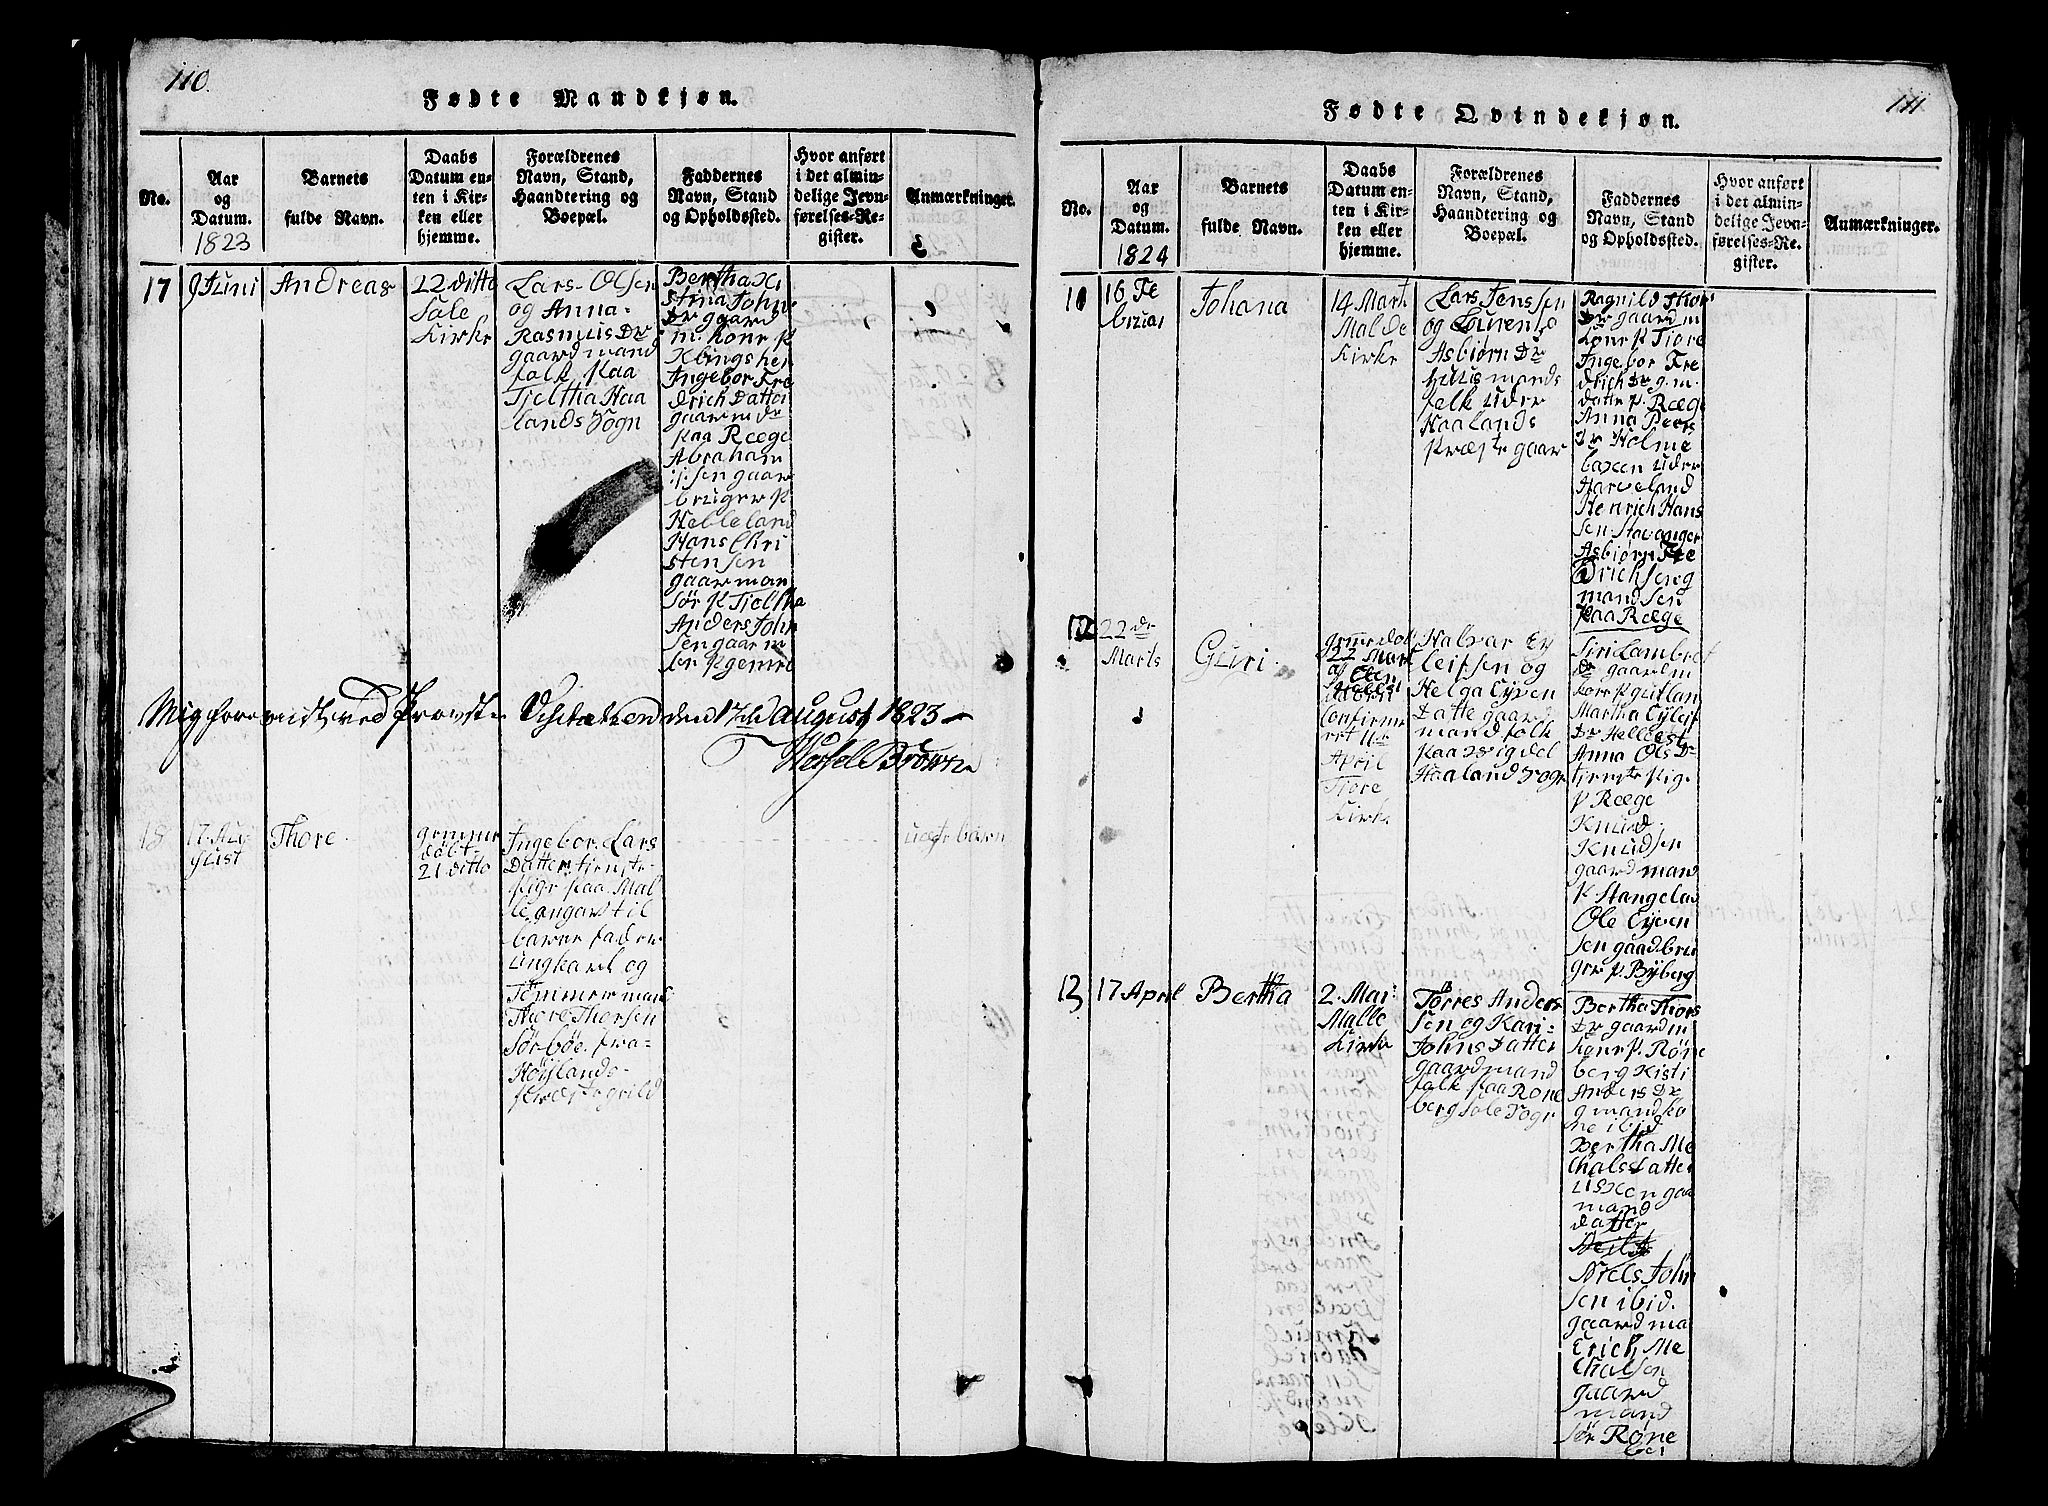 110.
Fødte Mandkjøn.
No.
Aar
og
Datum.
1823
Barnets
fulde Navn.
Daabs
Datum en-
ten i Kir-
ken eller
hjemme.
Forældrenes
Navn, Stand,
Haandtering og
Boepæl.
Faddernes
Navn, Stand
og Opholdssted.
Hvor anført
i det almin-
delige Jevn-
førelses-Re-
gister.
Anmærkninger.
17
9 Juni
Andreas
22 ditto
Sole
Kirke
Lars Olsen
og Anna
Rasmus Dr
gaardmand
folk paa
Tjeltha Haa
lands Sogn
Bertha Ki
stina Johns
Dr gaard
m. kone p
Klingshei
Ingebor Fre
drich Datter
gaar m dr
paa Ræge
Abraham
gaar
bruger p
Helleland
Hans Chri
stensen
gaar man
sør p Tjeltha
Anders John
sen gaar m
den 17de August 1823
Brown
18
17 Au
gust
Thore
21 ditto
Ingebor Lars
Datter tjeneste
pige paa Mal
le angav til
barne fader
ungkarl og
Tømmermand
Thore Thorsen
Sørbøe fra
Høylands
uægte barn
111.
Fødte Qvindekjøn.
No.
Aar
og
Datum.
1824
Barnets
fulde Navn.
Daabs
Datum en-
ten i Kir-
ken eller
hjemme.
Forældrenes
Navn, Stand,
Haandtering og
Boepæl.
Faddernes
Navn, Stand
og Opholdssted.
Hvor anført
i det almin-
delige Jevn-
førelses-Re-
gister.
Anmærkninger.
11
16 Fe
bruar
Johana
14 Marts
Malde
Kirke
Lars Jenssen
og Lourensa
Asbiørn Dr
huusmands
folk under
Haalands
Præste gaar
Ragnild Thor
Dr gaard m
kone p Tiore
Ingebor Fre
drich Dr g. m.
datte p. Ræge
Anna Peers
Dr Holme
Harveland
Henrich Hans
sen Stavanger
Asbiørn Fre
Drichsen g
mand sen
paa Ræge
12
22 de
Marts
Guri
Confirme
ret 11te
April
Tiore
Kirke
Halvar Ey
leifsen og
Helga Eyven
Datte gaard
mand folk
paa
Haaland Sogn
Siri Lambret
Dr gaard m
kone p Jutlan
Martha Eyleif
Dr
Anna Ols Dr
tjeneste pige
p Ræge
Knud
Knudsen
gaard mand
p Stangeland
Ole Eyven
sen gaadbru
ger p. Byberg
13
17 April
Bertha
2. Mai
Malle
Kirke
Torres Anders
sen og Kari
Johns Datter
gaardmand
folk paa Røne
berg Sole Sogn
Bertha Thors
Dr gaard m
kone p. Røne
berg Kisti
Anders Dr
g mand ko
ne ibid
Bertha Me
chals Datter
gaa
mand
datter
Niels John
sen ibid.
gaard ma
Erich Me
chalsen
gaard
mand
sør Røne
ber